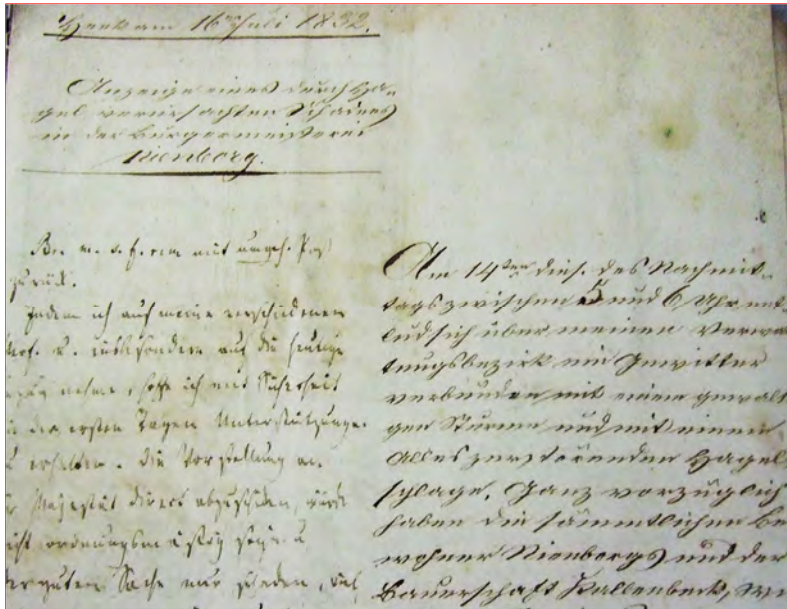 Heek am 16ten Juli 1832.
Anzeige eines durch Ha-
gel verursachten Schadens
in der Bürgermeisterei
Nienborg.
Br. m. s. f. rem mit umgeh. Post
zurück.
Indem ich auf meine verschiedenen
u. insbesondere auf die heutige
nehme, hoffe ich mit Sicherheit
in den ersten Tagen Unterstützung
erhalten. Die Vorstellung an
Majestät direct abzuschicken, würde
nicht ordnungsmäßig seyn u.
der guten Sache nur schaden,
Am 14ten dies. des Nachmit-
tags zwischen 5 und 6 Uhr ent-
lud sich über meinen Verwa
tungsbezirk ein Gewitter
verbunden mit einem gewalt
gen Sturme und mit einem
alles zerstörenden Hagel
schlage. Ganz vorzüglich
haben die sämmtlichen Be
wohner Nienborgs und der
Bauerschaft Kallenbeck,